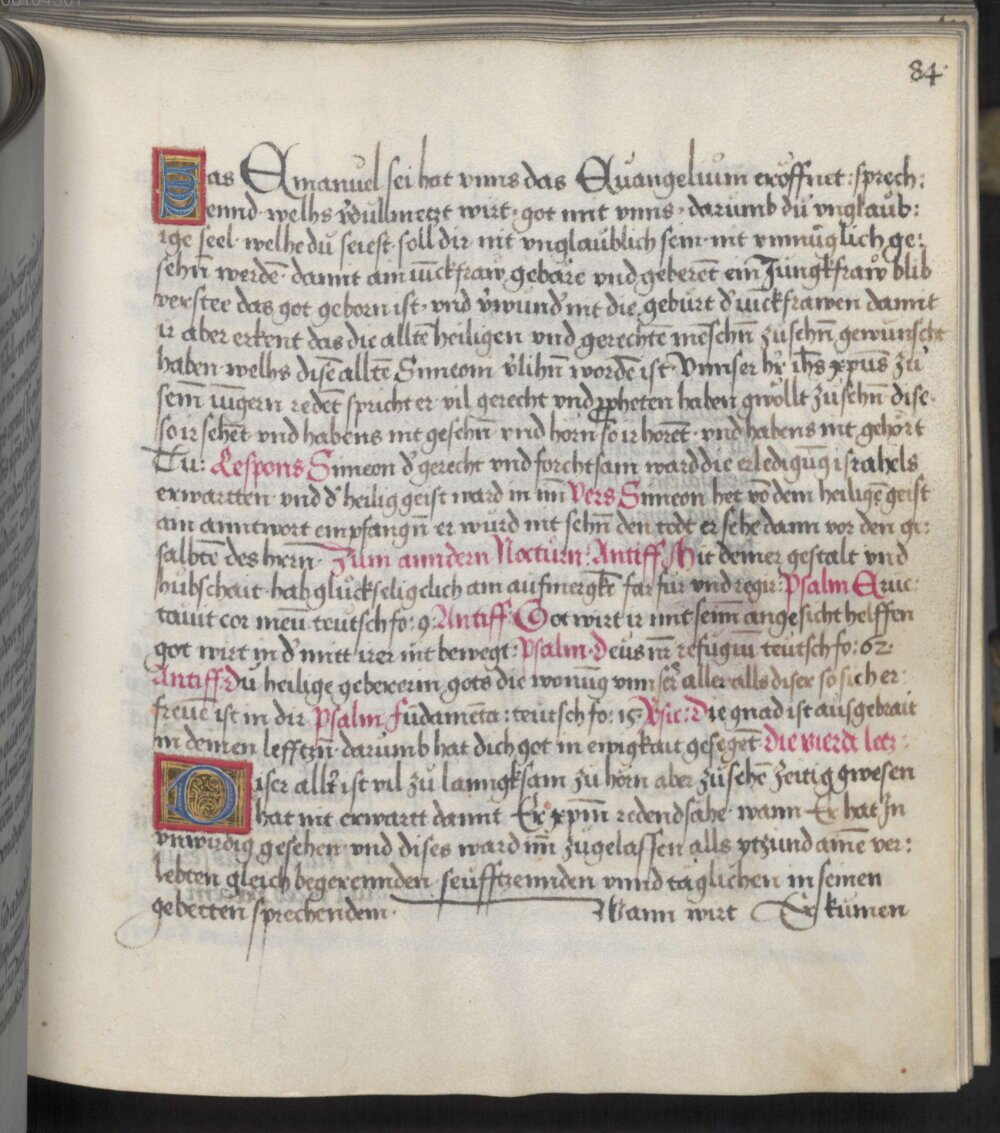 84
Was Emanuel sei hat vnns das Euangelium eröffnet : sprech:
ennd · welhs v̄dullmetzt wirt · got mit vnns · darumb du vnglaub:
ige seel · welhe du seiest · soll dir nit vnglaublich sein · nit vnmüglich ge:
sehn̄ werdē · damit am iūckfraw gebäre vnd geberēt ein Jungkfraw blib
verstee das got geborn ist · vnd v̄wund' nit die geburt d' iūckfrawen damit
ir aber erkent das die alltē heiligen vnd gerechtē mēschn̄ zu sehn̄ gewunscht
haben · welhs disē alltē Simeoni v̄lihn̄ wordē ist · Vnnser hr̄ ih̄s xp̄us zu
sein̄ iūngern redēt spricht er · vil gerecht vnd ppheten haben gwöllt zu sehn̄ · dise
so ir sehēt · vnd habens nit gesehn̄ · vnd hörn so ir hörēt · vnd habens nit gehört
Tu: Respons Simeon d' gerecht vnd forchtsam ward die erledigūg israhels
erwartten · vnd d' heilig geist ward in im̄ Vers Simeon het vō dem heiligē geist
am anntwort empfangn̄ er wurd nit sehn̄ den todt er sehe dann vor den ge:
salbtē des herrn̄ · Zum anndern Nocturn · Antiff Mit deiner gestalt vnd
hübschait · hab glückseligclich am aufmergkē far für vnd regir · Psalm Eruc
tauit cor meū · teutsch fo: 9 · Antiff · Got wirt ir mit sein̄m angesicht helffen
got wirt in d' mitt irer nit bewegt : Psalm · Deus nr̄ refugiū teutsch fo: 62 ·
Antiff · Du heilige gebererin gots die wonūg vnnser aller alls diser so sich er:
freuē ist in dir Psalm Fūdamēta : teutsch fo: 15 · Vsic: Die gnad ist ausgebrait
in deinen lefftzn̄ · darumb hat dich got in ewigkait gesegēt · die vierdt letz :
Diser allt' ist vil zu lanngksam zu hörn aber zu sehē zeitig gwesen
hat nit erwartt damit Er xp̄m̄ redend sähe · wann Er hat Jn
vnwirdig gesehen · vnd dises ward im̄ zugelassen alls ytzund amē ver:
lebten gleich begerennden · seufftzennden vnnd täglichen in seinen
gebetten sprechendem · Wann wirt Er kumen